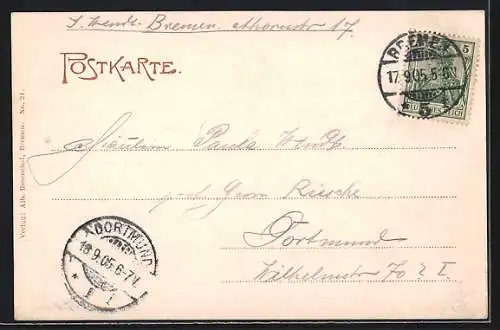 S. Wendt. Bremen.
POSTKARTE.
BREMEN
17.9.05.
5
5
Fräulein Paula Wendt
Herrn
Dortmund
Wilhelmstr 70 I.
DORTMUND
18.9.05.6-7V.
* 1
Verlag: Alb. Rosenthal, Bremen. No. 21.